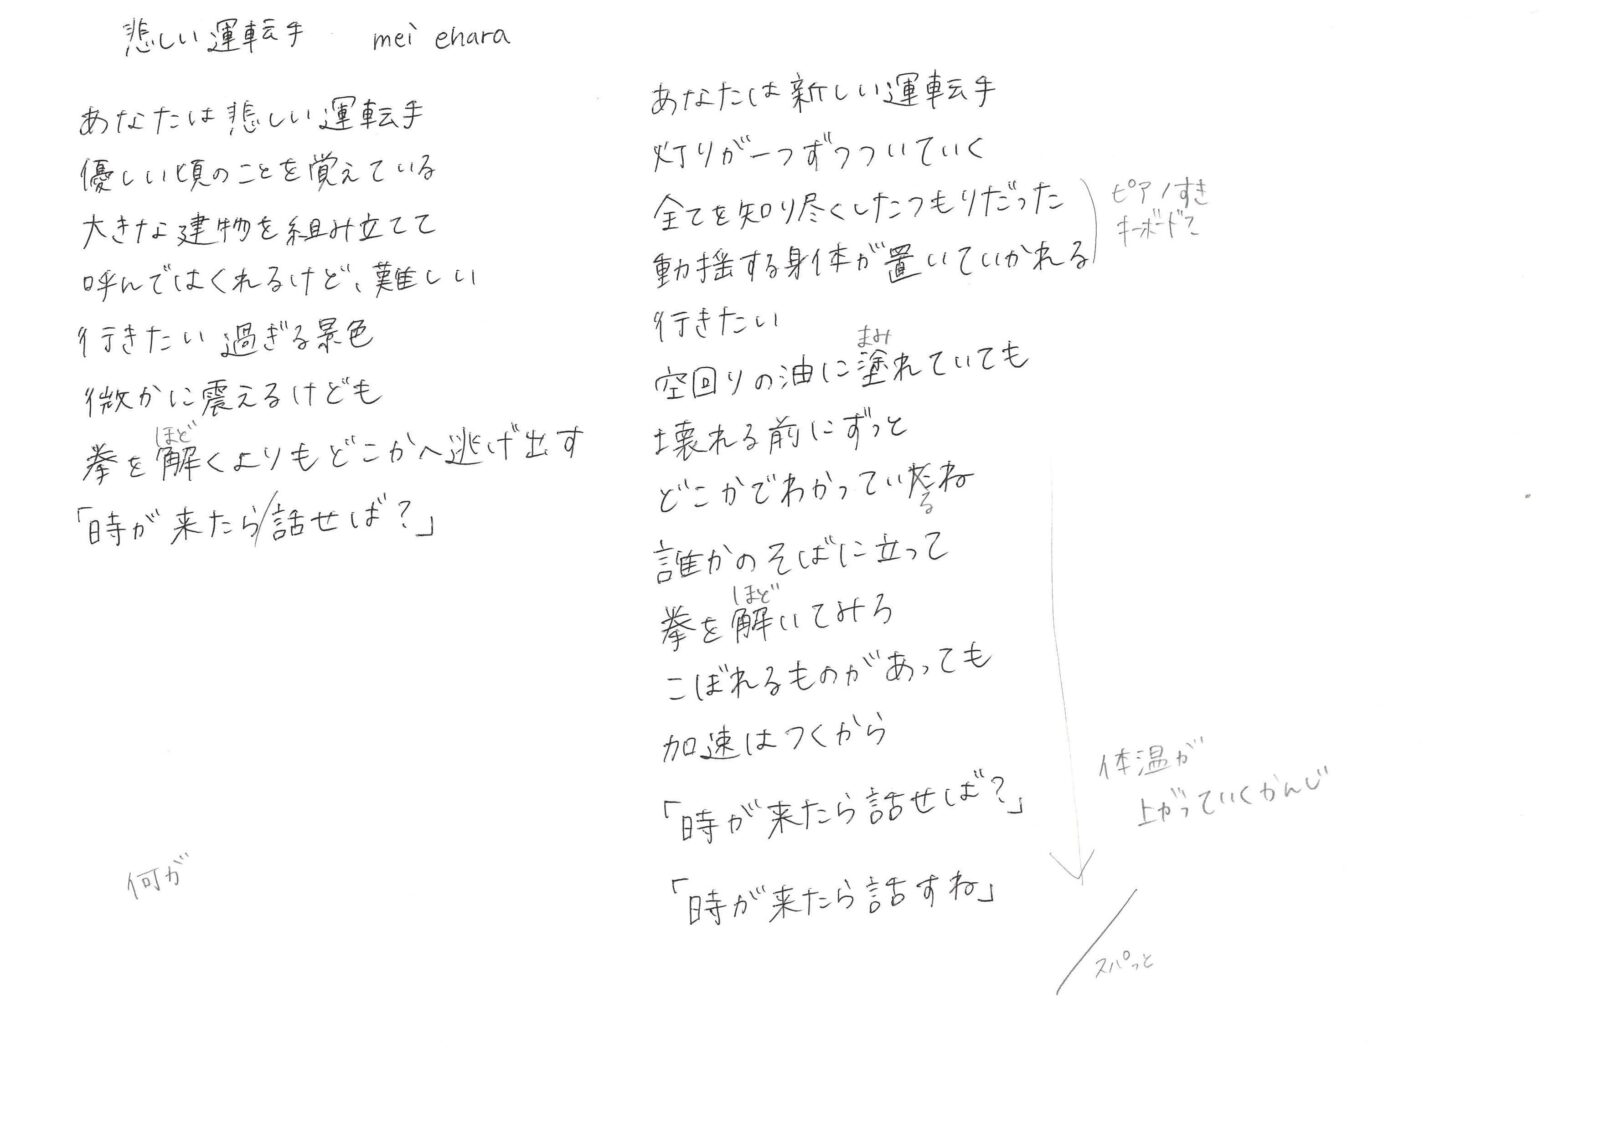 悲しい運転手 mei ehara
あなたは悲しい運転手
優しい頃のことを覚えている
大きな建物を組み立てて
呼んではくれるけど、難しい
行きたい 過ぎる景色
微かに震えるけども
ほど
拳を解くよりもどこかへ逃げ出す
「時が来たら/話せば?」
何が
あなたは新しい運転手
灯りが一つずつついていく
全てを知り尽くしたつもりだった
動揺する身体が置いていかれる
ピアノすき
キーボード?
行きたい
まみ
空回りの油に塗れていても
壊れる前にずっと
どこかでわかっていたね
る
誰かのそばに立って
ほど
拳を解いてみろ
こぼれるものがあっても
加速はつくから
「時が来たら話せば?」
「時が来たら話すね」
体温が
上がっていくかんじ
スパっと